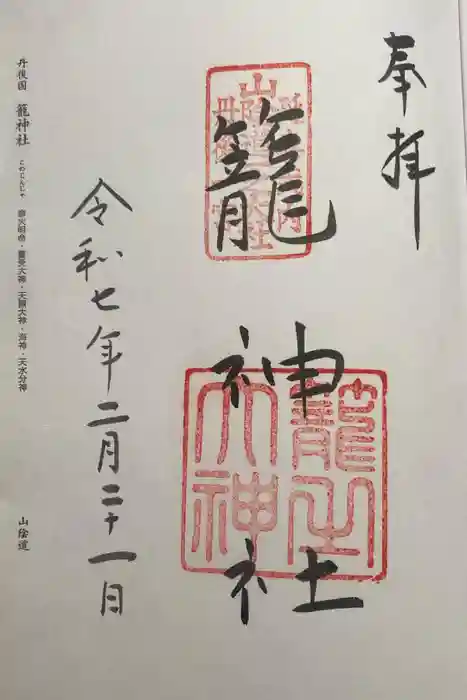 奉拝
籠神社
籠之大神
令和七年二月二十一日
丹後国 籠神社 このじんじゃ 彦火明命・豊受大神・天照大神・海神・天水分神 山陰道